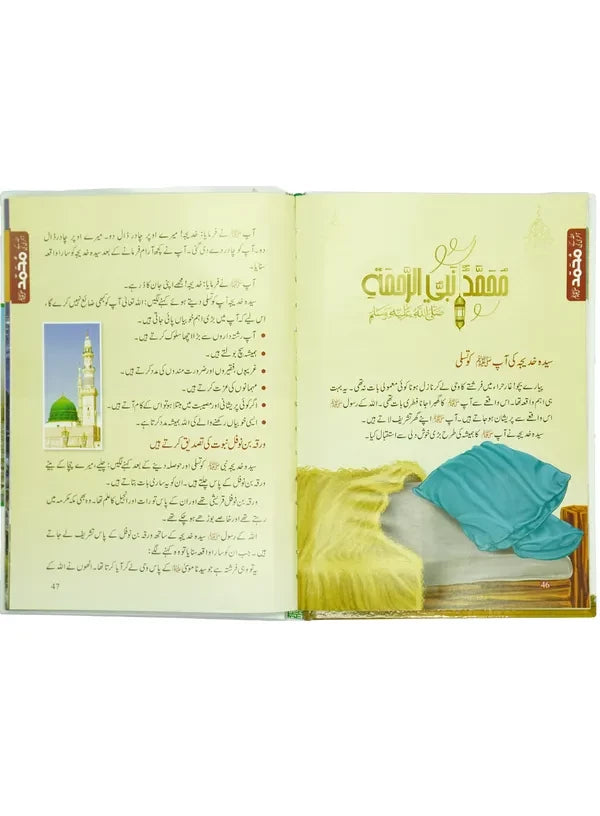 محمد نبي الرحمة
صلى الله عليه وسلم
سیدہ خدیجہ کی آپ ﷺ کو تسلی
پیارے بچو! غارِ حراء میں فرشتے کا وحی لے کر نازل ہونا کوئی معمولی بات نہ تھی۔ یہ بہت
ہی اہم واقعہ تھا۔ اس واقعے سے آپ ﷺ کا گھبرا جانا فطری بات تھی۔ اللہ کے رسول ﷺ
اس واقعے سے پریشان ہو جاتے ہیں۔ آپ ﷺ اپنے گھر تشریف لاتے ہیں۔
سیدہ خدیجہ نے آپ ﷺ کا ہمیشہ کی طرح بڑی خوش دلی سے استقبال کیا۔
46
محمد ﷺ
آپ ﷺ نے فرمایا: خدیجہ! میرے اوپر چادر ڈال دو۔ میرے اوپر چادر ڈال
دو۔ آپ کو چادر دے دی گئی۔ آپ نے کچھ آرام فرمانے کے بعد سیدہ خدیجہ کو سارا واقعہ
سنایا۔
آپ ﷺ نے فرمایا: خدیجہ! مجھے اپنی جان کا ڈر ہے۔
سیدہ خدیجہ آپ کو تسلی دیتے ہوئے کہنے لگیں: اللہ تعالیٰ آپ کو کبھی ضائع نہیں کرے گا،
اس لیے کہ آپ میں بڑی اہم خوبیاں پائی جاتی ہیں۔
آپ رشتہ داروں سے بڑا اچھا سلوک کرتے ہیں۔
ہمیشہ سچ بولتے ہیں۔
غریبوں، فقیروں اور ضرورت مندوں کی مدد کرتے ہیں۔
مہمانوں کی عزت کرتے ہیں۔
اگر کوئی پریشانی اور مصیبت میں مبتلا ہو تو اس کے کام آتے ہیں۔
ایسی خوبیاں رکھنے والے کی اللہ ہمیشہ مدد کرتا ہے۔
ورقہ بن نوفل نبوت کی تصدیق کرتے ہیں
سیدہ خدیجہ نبی ﷺ کو تسلی اور حوصلہ دینے کے بعد کہنے لگیں: چلیے، میرے چچا کے بیٹے
ورقہ بن نوفل کے پاس چلتے ہیں۔ ان کو یہ ساری بات بتاتے ہیں۔
ورقہ بن نوفل قریشی تھے اور ان کے پاس تورات اور انجیل کا علم تھا۔ وہ بھی مکہ مکرمہ میں
رہتے تھے اور خاصے بوڑھے ہو چکے تھے۔
اللہ کے رسول ﷺ سیدہ خدیجہ کے ساتھ ورقہ بن نوفل کے پاس تشریف لے جاتے
ہیں۔ جب ان کو سارا واقعہ سنایا تو وہ کہنے لگے:
یہ تو وہی فرشتہ ہے جو سیدنا موسیٰ کے پاس وحی لے کر آیا کرتا تھا۔ انھوں نے اللہ کے
47
محمد ﷺ